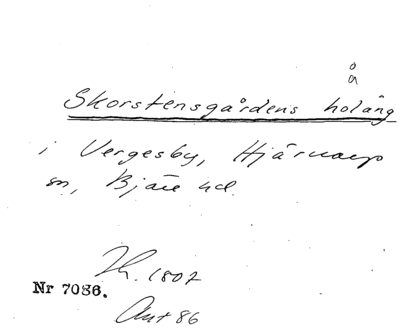 å
Skorstensgårdens holäng
i Vergesby, Hjärnarp
sn, Bjäre hd.
Th. 1807
Nr 7086.
Ant 86